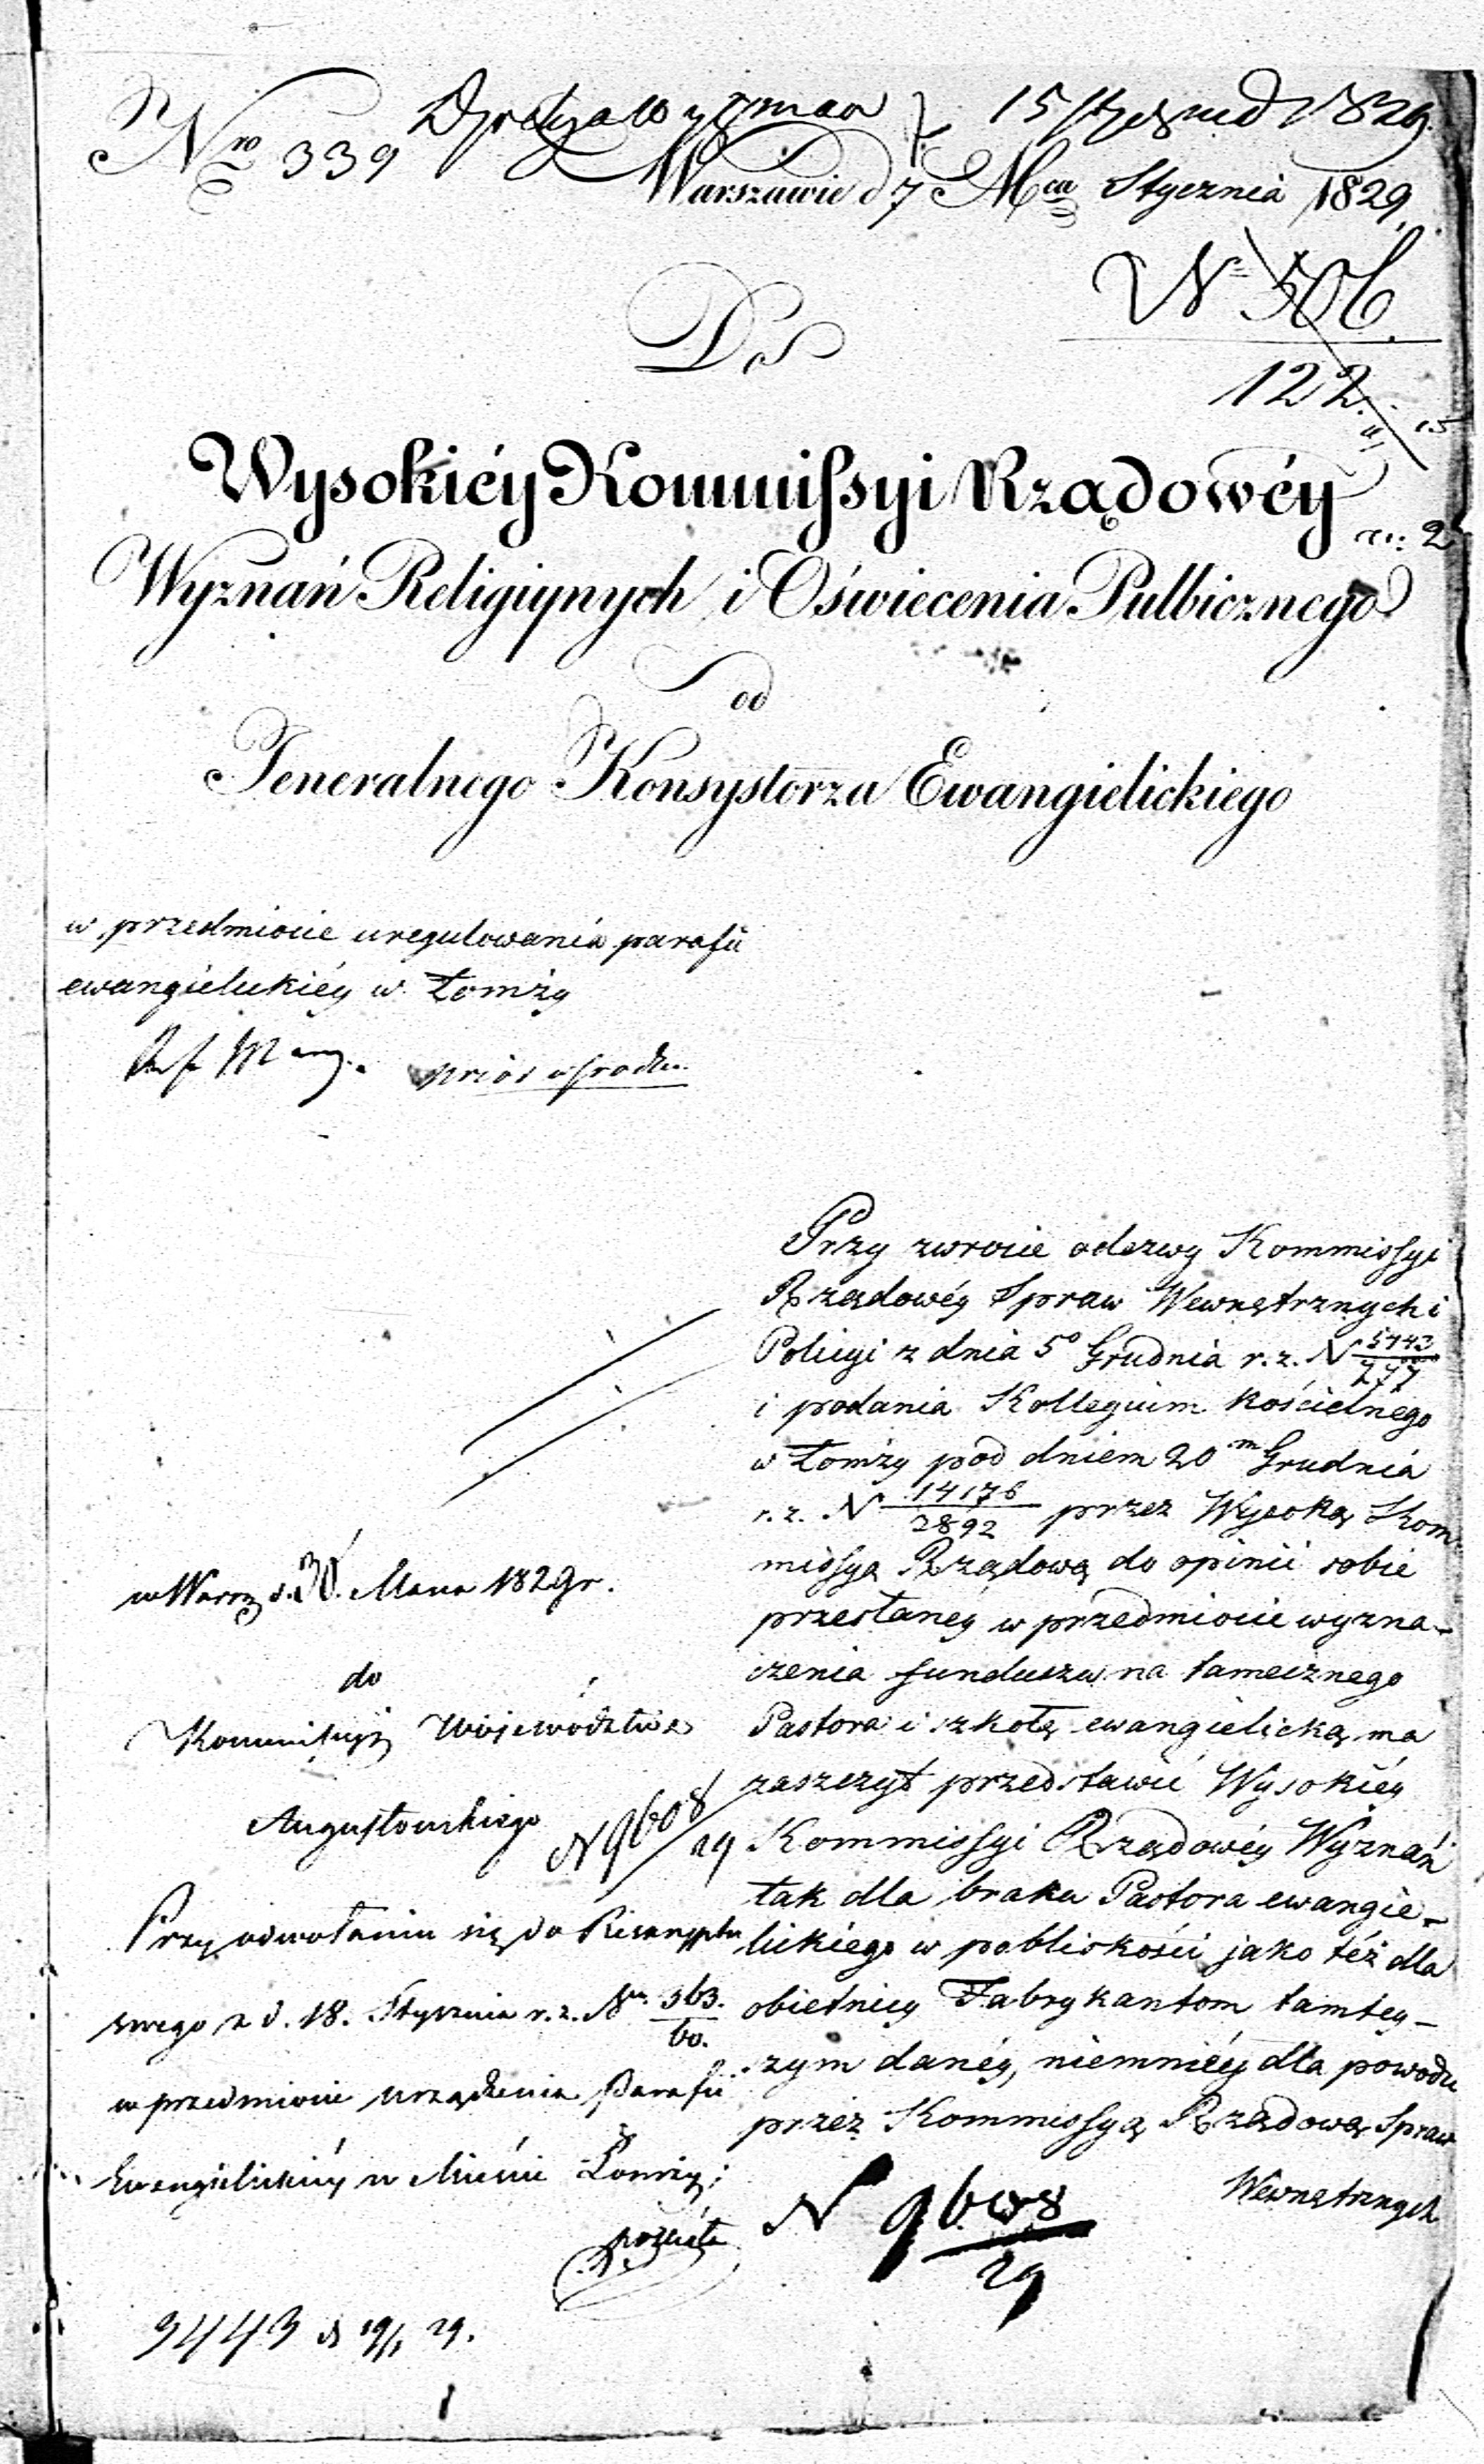 Nro 339
15 1829.
Warszawie d 7 Mca Stycznia 1829
N 506.
122.
Do
Wysokiéy Kommissyi Rządowéy
Wyznań Religiynych i Oświecenia Pulbicznego
od
Jeneralnego Konsystorza Ewangielickiego
w przedmiocie uregulowania parafii
ewangielickiéy w Łomży
Przy zwrocie odezwy Kommissyi
Rządowéy Spraw Wewnętrznych i
Policyi z dnia 5o Grudnia r. z. N 5743/277
i podania Kollegium kościelnego
w Łomży pod dniem 20m Grudnia
r. z. N 14176/2892 przez Wysoką Kom
missyą Rządową do opinii sobie
przesłaney w przedmiocie wyzna-
czenia funduszu na tamecznego
Pastora i szkołę ewangielicką ma
zaszczyt przedstawić Wysokiéy
Kommissyi Rządowéy Wyznań
tak dla braku Pastora ewangie-
lickiégo w pobliskości jako też dla
obietnicy Fabrykantom tamtey-
szym danéy, niemniéy dla powodu
przez Kommissyą Rządową Spraw
Wewnętrznych
w Warsz d. 30. Marca 1829 r.
do
Kommissyi Województwa
Augustowskiego
N 9608/29
Przy odwołaniu się do Reskryptu
swego z d. 18. Stycznia r. z. Nro 363./60.
w przedmiocie urządzenia Parafii
Ewangielickiéy w Mieście Łomży;
przesyła
N 9608/29
3443 d 19/1 29.